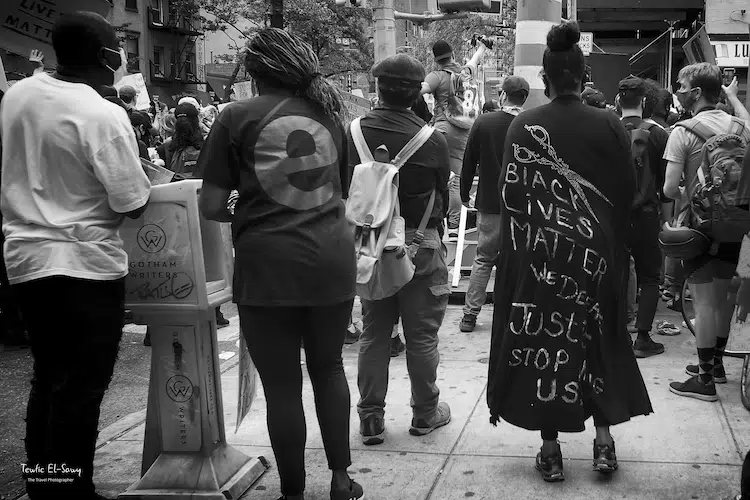 LIVES
MATTER
e
8
GOTHAM
WRITERS
GW
WRITERS
BLACK
LIVES
MATTER
WE DE
JUST
STOP
US
LU
Tewfic El-Sawy
The Travel Photographer